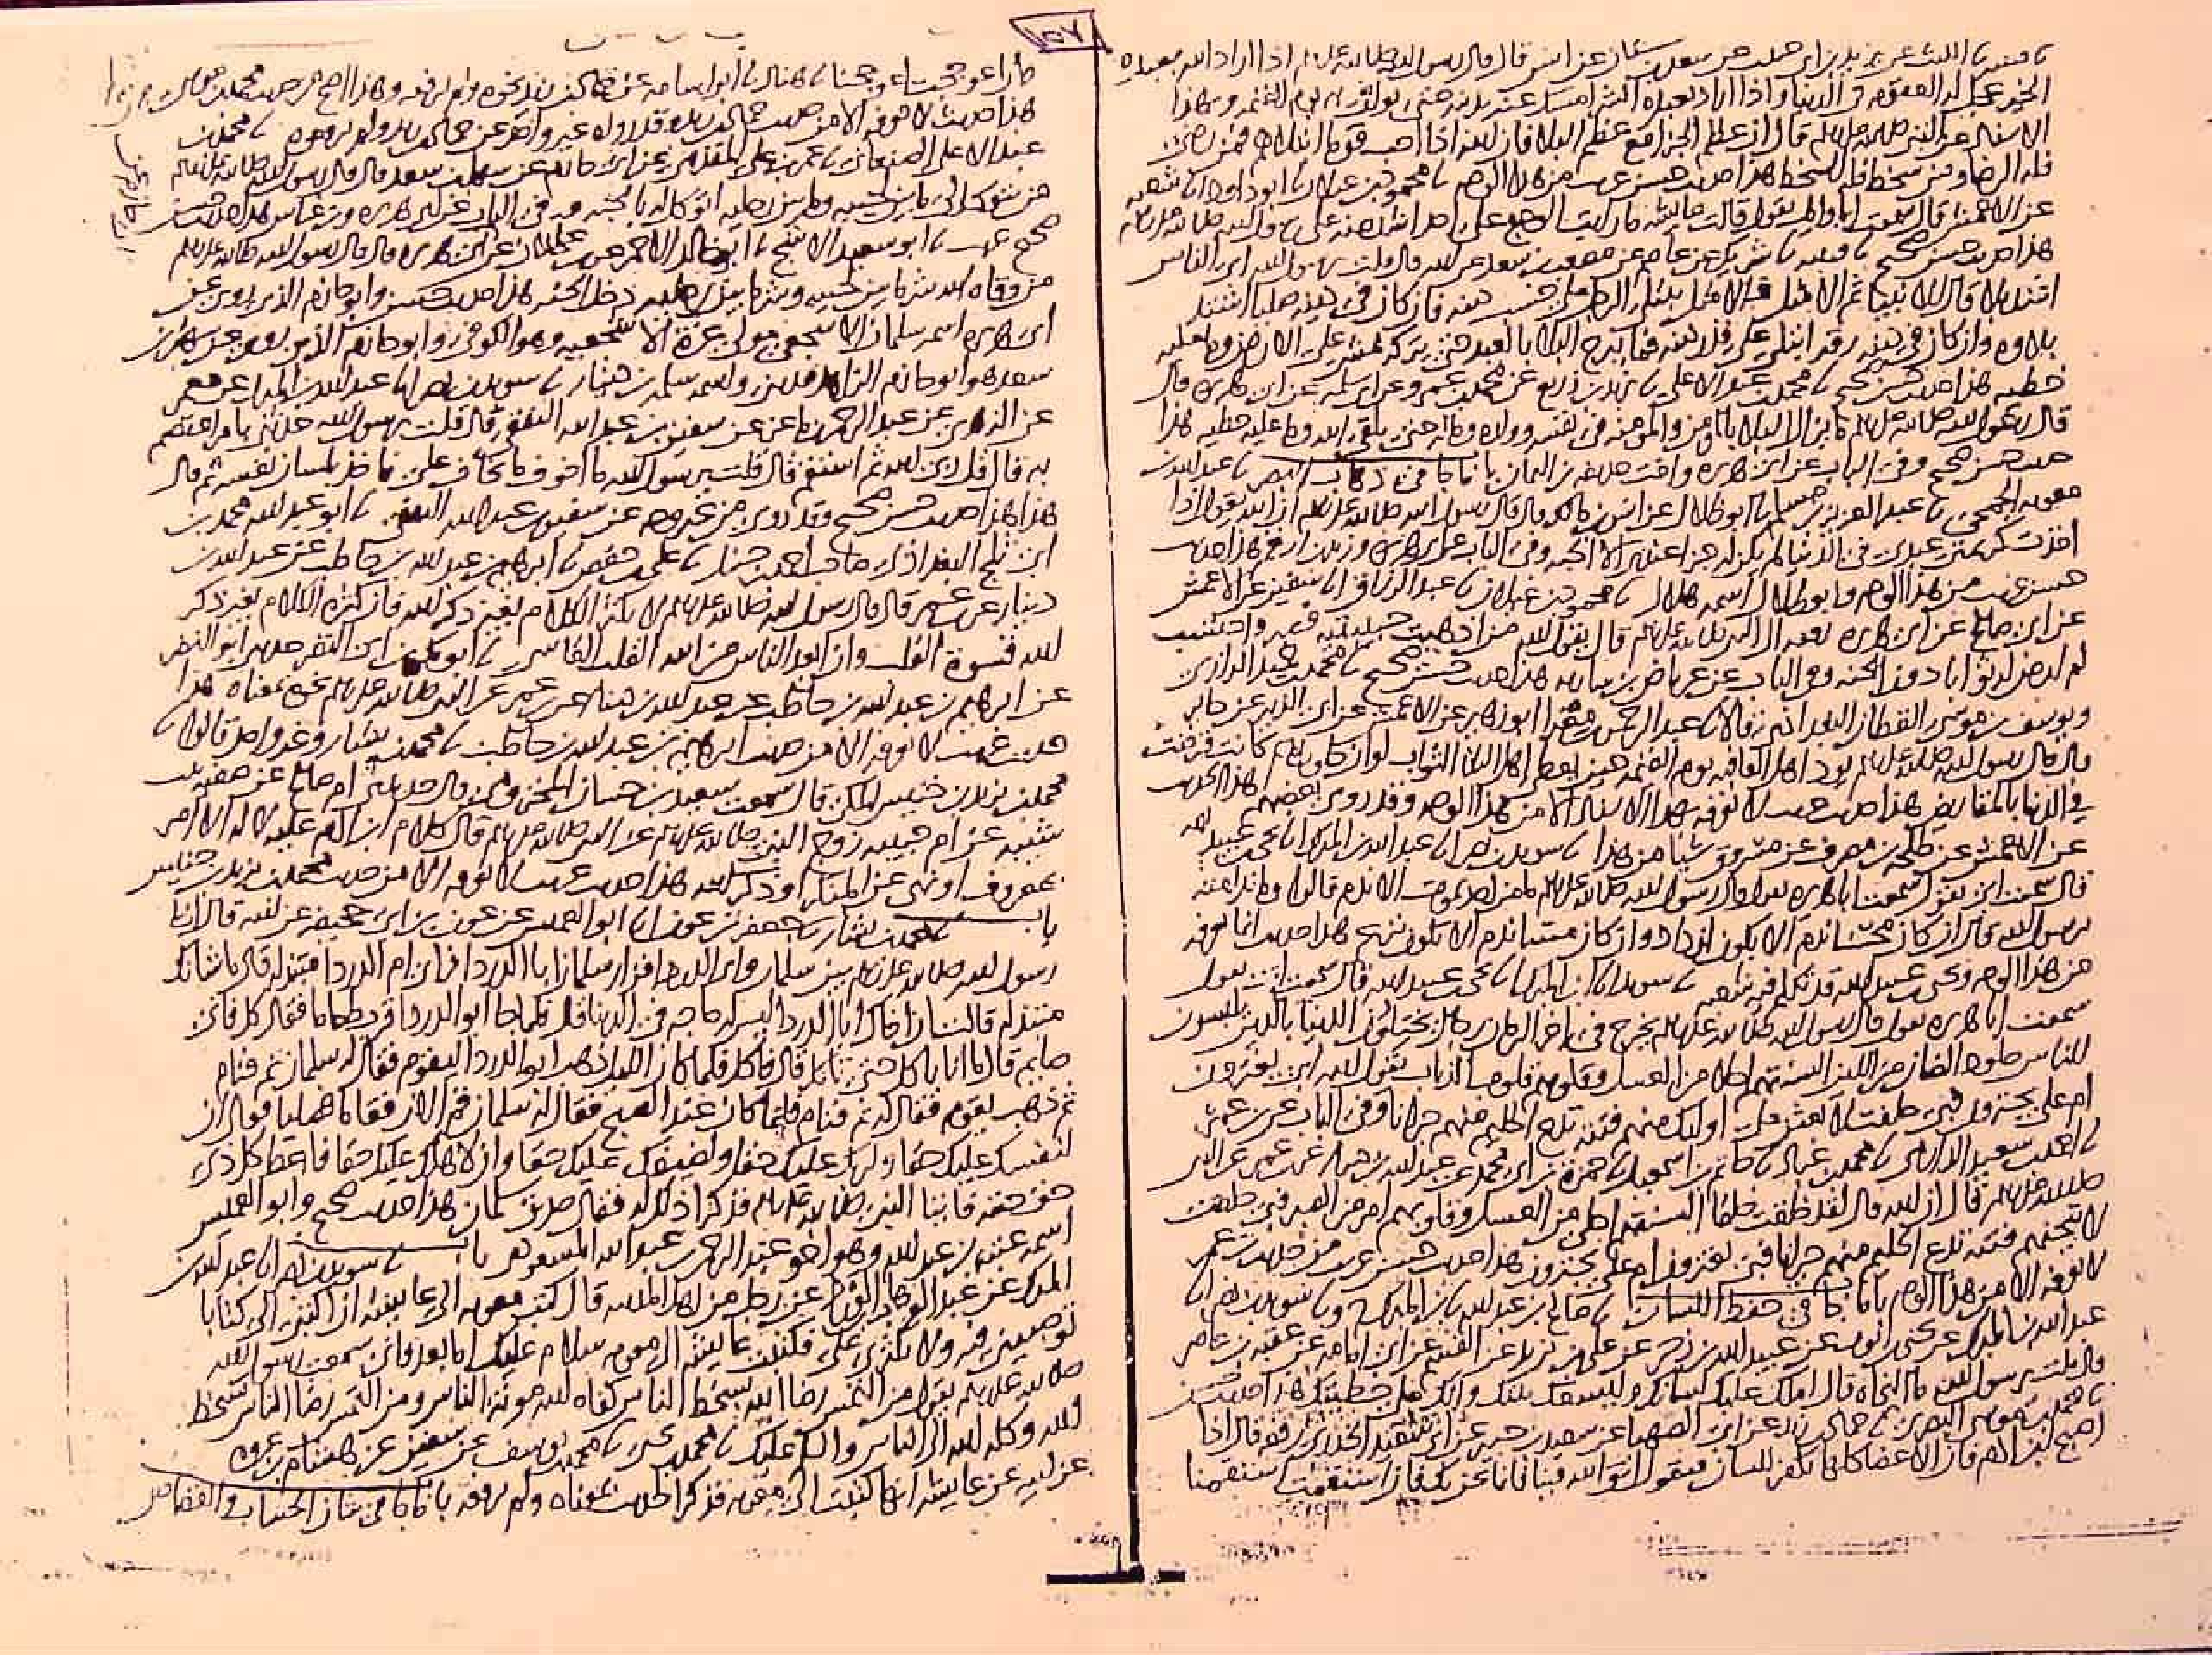 ١٥٧
نا قتيبة نا الليث عن يزيد بن ابي حبيب عن سعد بن سنان عن انس قال قال رسول الله صلى الله عليه وسلم اذا اراد الله بعبده
الخير عجل له العقوبة في الدنيا واذا اراد بعبده الشر امسك عنه بذنبه حتى يوافي به يوم القيمة وبهذا
الاسناد عن النبي صلى الله عليه وسلم قال ان عظم الجزا مع عظم البلا وان الله اذا احب قوما ابتلاهم فمن رضي
فله الرضا ومن سخط فله السخط هذا حديث حسن غريب من هذا الوجه نا محمود بن غيلان نا ابو داود انا شعبة
عن الاعمش قال سمعت ابا وايل يقول قالت عايشة ما رايت الوجع على احد اشد منه على رسول الله صلى الله عليه وسلم
هذا حديث حسن صحيح نا قتيبة نا شريك عن عاصم عن مصعب بن سعد عن ابيه قال قلت يرسول الله اي الناس
اشد بلا قال الانبيا ثم الامثل فالامثل يبتلى الرجل على حسب دينه فان كان في دينه صلبا اشتد
بلاوه وان كان في دينه رقة ابتلي على قدر دينه فما يبرح البلا بالعبد حتى يتركه يمشي على الارض وما عليه
خطية هذا حديث حسن صحيح نا محمد بن عبد الاعلى نا يزيد بن زريع عن محمد بن عمرو عن ابي سلمة عن ابي هريرة قال
قال رسول الله صلى الله عليه وسلم ما يزال البلا بالمومن والمومنة في نفسه وولده وماله حتى يلقى الله وما عليه خطية هذا
حديث حسن صحيح وفي الباب عن ابي هريرة واخت حذيفة بن اليمان باب ما جا في ذهاب البصر نا عبد الله بن
معوية الجمحي نا عبد العزيز بن مسلم نا ابو ظلال عن انس بن مالك قال قال رسول الله صلى الله عليه وسلم ان الله يقول اذا
اخذت كريمتي عبدي في الدنيا لم يكن له جزا عندي الا الجنة وفي الباب عن ابي هريرة وزيد بن ارقم هذا حديث
حسن غريب من هذا الوجه وابو ظلال اسمه هلال نا محمود بن غيلان نا عبد الرزاق انا سفين عن الاعمش
عن ابي صالح عن ابي هريرة رفعه الى النبي صلى الله عليه وسلم قال يقول الله من اذهبت حبيبتيه فصبر واحتسب
لم ارض له ثوابا دون الجنة وفي الباب عن عرباض بن سارية هذا حديث حسن صحيح نا محمد بن حميد الرازي
ويوسف بن موسى القطان البغدادي قالا نا عبد الرحمن بن مغرا ابو زهير عن الاعمش عن ابي الزبير عن جابر
قال قال رسول الله صلى الله عليه وسلم يود اهل العافية يوم القيمة حين يعطى اهل البلا الثواب لو ان جلودهم كانت قرضت
في الدنيا بالمقاريض هذا حديث غريب لا نعرفه بهذا الاسناد الا من هذا الوجه وقد روى بعضهم هذا الحديث
عن الاعمش عن طلحة بن مصرف عن مسروق شيا من هذا نا سويد بن نصر انا عبد الله بن المبرك انا يحيى بن عبيد الله
قال سمعت ابي يقول سمعت ابا هريرة يقول قال رسول الله صلى الله عليه وسلم ما من احد يموت الا ندم قالوا وما ندامته
يرسول الله قال ان كان محسنا ندم الا يكون ازداد وان كان مسيا ندم الا يكون نزع هذا حديث انما نعرفه
من هذا الوجه ويحيى بن عبيد الله قد تكلم فيه شعبة نا سويد انا ابن المبرك انا يحيى بن عبيد الله قال سمعت ابي يقول
سمعت ابا هريرة يقول قال رسول الله صلى الله عليه وسلم يخرج في اخر الزمان رجال يختلون الدنيا بالدين يلبسون
للناس جلود الضان من اللين السنتهم احلا من العسل وقلوبهم قلوب الذياب يقول الله ابي يغترون
ام علي يجترون فبي حلفت لابعثن على اوليك منهم فتنة تدع الحليم منهم حيرانا وفي الباب عن ابن عمر
نا احمد بن سعيد الدارمي نا محمد بن عباد نا حاتم بن اسمعيل نا حمزة بن ابي محمد عن عبد الله بن دينار عن ابن عمر عن النبي
صلى الله عليه وسلم قال ان الله قال لقد خلقت خلقا السنتهم احلى من العسل وقلوبهم امر من الصبر فبي حلفت
لاتيحنهم فتنة تدع الحليم منهم حيرانا فبي يغترون ام علي يجترون هذا حديث حسن غريب من حديث ابن عمر
لا نعرفه الا من هذا الوجه باب ما جا في حفظ اللسان نا صالح بن عبد الله نا ابن المبرك ح ونا سويد بن نصر انا
عبد الله بن المبرك عن يحيى بن ايوب عن عبيد الله بن زحر عن علي بن يزيد عن القسم عن ابي امامة عن عقبة بن عامر
قال قلت يرسول الله ما النجاة قال املك عليك لسانك وليسعك بيتك وابك على خطيتك هذا حديث حسن
نا محمد بن موسى البصري نا حماد بن زيد عن ابي الصهبا عن سعيد بن جبير عن ابي سعيد الخدري رفعه قال اذا
اصبح ابن ادم فان الاعضا كلها تكفر اللسان فتقول اتق الله فينا فانا نحن بك فان استقمت استقمنا
وان اعوججت اعوججنا نا هناد نا ابو اسامة عن حماد بن زيد نحوه ولم يرفعه وهذا اصح من حديث محمد بن موسى
هذا حديث لا نعرفه الا من حديث حماد بن زيد وقد رواه غير واحد عن حماد بن زيد ولم يرفعوه نا محمد بن
عبد الاعلى الصنعاني نا عمر بن علي المقدمي عن ابي حازم عن سهل بن سعد قال قال رسول الله صلى الله عليه وسلم
من يتوكل لي ما بين لحييه وما بين رجليه اتوكل له بالجنة وفي الباب عن ابي هريرة وابن عباس هذا حديث حسن
صحيح غريب نا ابو سعيد الاشج نا ابو خالد الاحمر عن ابن عجلان عن ابي حازم عن ابي هريرة قال قال رسول الله صلى الله عليه وسلم
من وقاه الله شر ما بين لحييه وشر ما بين رجليه دخل الجنة هذا حديث حسن وابو حازم الذي روى عن
ابي هريرة اسمه سلمان الاشجعي مولى عزة الاشجعية وهو الكوفي وابو حازم الذي روى عن سهل بن
سعد هو ابو حازم الزاهد مديني واسمه سلمة بن دينار نا سويد بن نصر انا عبد الله بن المبرك عن معمر
عن الزهري عن عبد الرحمن بن ماعز عن سفين بن عبد الله الثقفي قال قلت يرسول الله حدثني بامر اعتصم
به قال قل ربي الله ثم استقم قال قلت يرسول الله ما اخوف ما تخاف علي فاخذ بلسان نفسه ثم قال
هذا هذا حديث حسن صحيح وقد روي من غير وجه عن سفين بن عبد الله الثقفي نا ابو عبد الله محمد بن
ابي ثلج البغدادي صاحب احمد بن حنبل نا علي بن حفص نا ابرهيم بن عبد الله بن حاطب عن عبد الله بن
دينار عن ابن عمر قال قال رسول الله صلى الله عليه وسلم لا تكثر الكلام بغير ذكر الله فان كثرة الكلام بغير ذكر
الله قسوة القلب وان ابعد الناس من الله القلب القاسي نا ابو بكر بن ابي النضر حدثني ابو النضر
عن ابرهيم بن عبد الله بن حاطب عن عبد الله بن دينار عن ابن عمر عن النبي صلى الله عليه وسلم نحوه بمعناه هذا
حديث غريب لا نعرفه الا من حديث ابرهيم بن عبد الله بن حاطب نا محمد بن بشار وغير واحد قالوا نا
محمد بن يزيد بن خنيس المكي قال سمعت سعيد بن حسان المخزومي قال حدثتني ام صالح عن صفية بنت
شيبة عن ام حبيبة زوج النبي صلى الله عليه وسلم عن النبي صلى الله عليه وسلم قال كلام ابن ادم عليه لا له الا امر
بمعروف او نهي عن المنكر او ذكر الله هذا حديث غريب لا نعرفه الا من حديث محمد بن يزيد بن خنيس
باب نا محمد بن بشار نا جعفر بن عون انا ابو العميس عن عون بن ابي جحيفة عن ابيه قال اخا
رسول الله صلى الله عليه وسلم بين سلمان وابي الدردا فزار سلمان ابا الدردا فراى ام الدردا متبذلة قال ما شانك
متبذلة قالت ان اخاك ابا الدردا ليس له حاجة في الدنيا قال فلما جا ابو الدردا قرب طعاما فقال كل فاني
صايم قال ما انا باكل حتى تاكل قال فاكل فلما كان الليل ذهب ابو الدردا ليقوم فقال له سلمان نم فنام
ثم ذهب يقوم فقال له نم فنام فلما كان عند الصبح فقال له سلمان قم الان فقاما فصليا فقال ان
لنفسك عليك حقا ولربك عليك حقا ولضيفك عليك حقا وان لاهلك عليك حقا فاعط كل ذي
حق حقه فاتيا النبي صلى الله عليه وسلم فذكرا ذلك له فقال صدق سلمان هذا حديث صحيح وابو العميس
اسمه عتبة بن عبد الله وهو اخو عبد الرحمن بن عبد الله المسعودي باب نا سويد بن نصر انا عبد الله بن
المبرك عن عبد الوهاب بن الورد عن رجل من اهل المدينة قال كتب معوية الى عايشة ان اكتبي الي كتابا
توصيني فيه ولا تكثري علي فكتبت عايشة الى معوية سلام عليك اما بعد فاني سمعت رسول الله
صلى الله عليه وسلم يقول من التمس رضا الله بسخط الناس كفاه الله مونة الناس ومن التمس رضا الناس بسخط
الله وكله الله الى الناس والسلام عليك نا محمد بن يحيى نا محمد بن يوسف عن سفين عن هشام بن عروة
عن ابيه عن عايشة انها كتبت الى معوية فذكر الحديث بمعناه ولم يرفعه باب ما جا في شان الحساب والقصاص